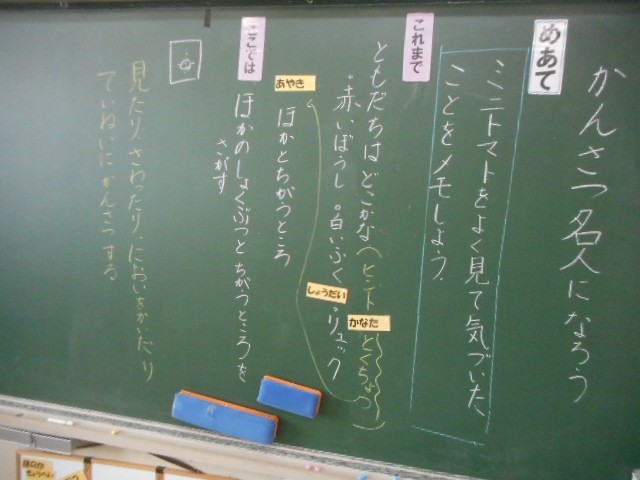 かんさつ名人になろう
めあて
ミニトマトをよく見て気づいた
ことをメモしよう。
これまで
ともだちはどこかな(ヒント とくちょう)
・赤いぼうし ・白いふく ・リュック
しょうだい
かなた
あやき
ほかとちがうところ
ここでは
ほかのしょくぶつとちがうところを
さがす
見たり、さわったり、においをかいだり
ていねいにかんさつする